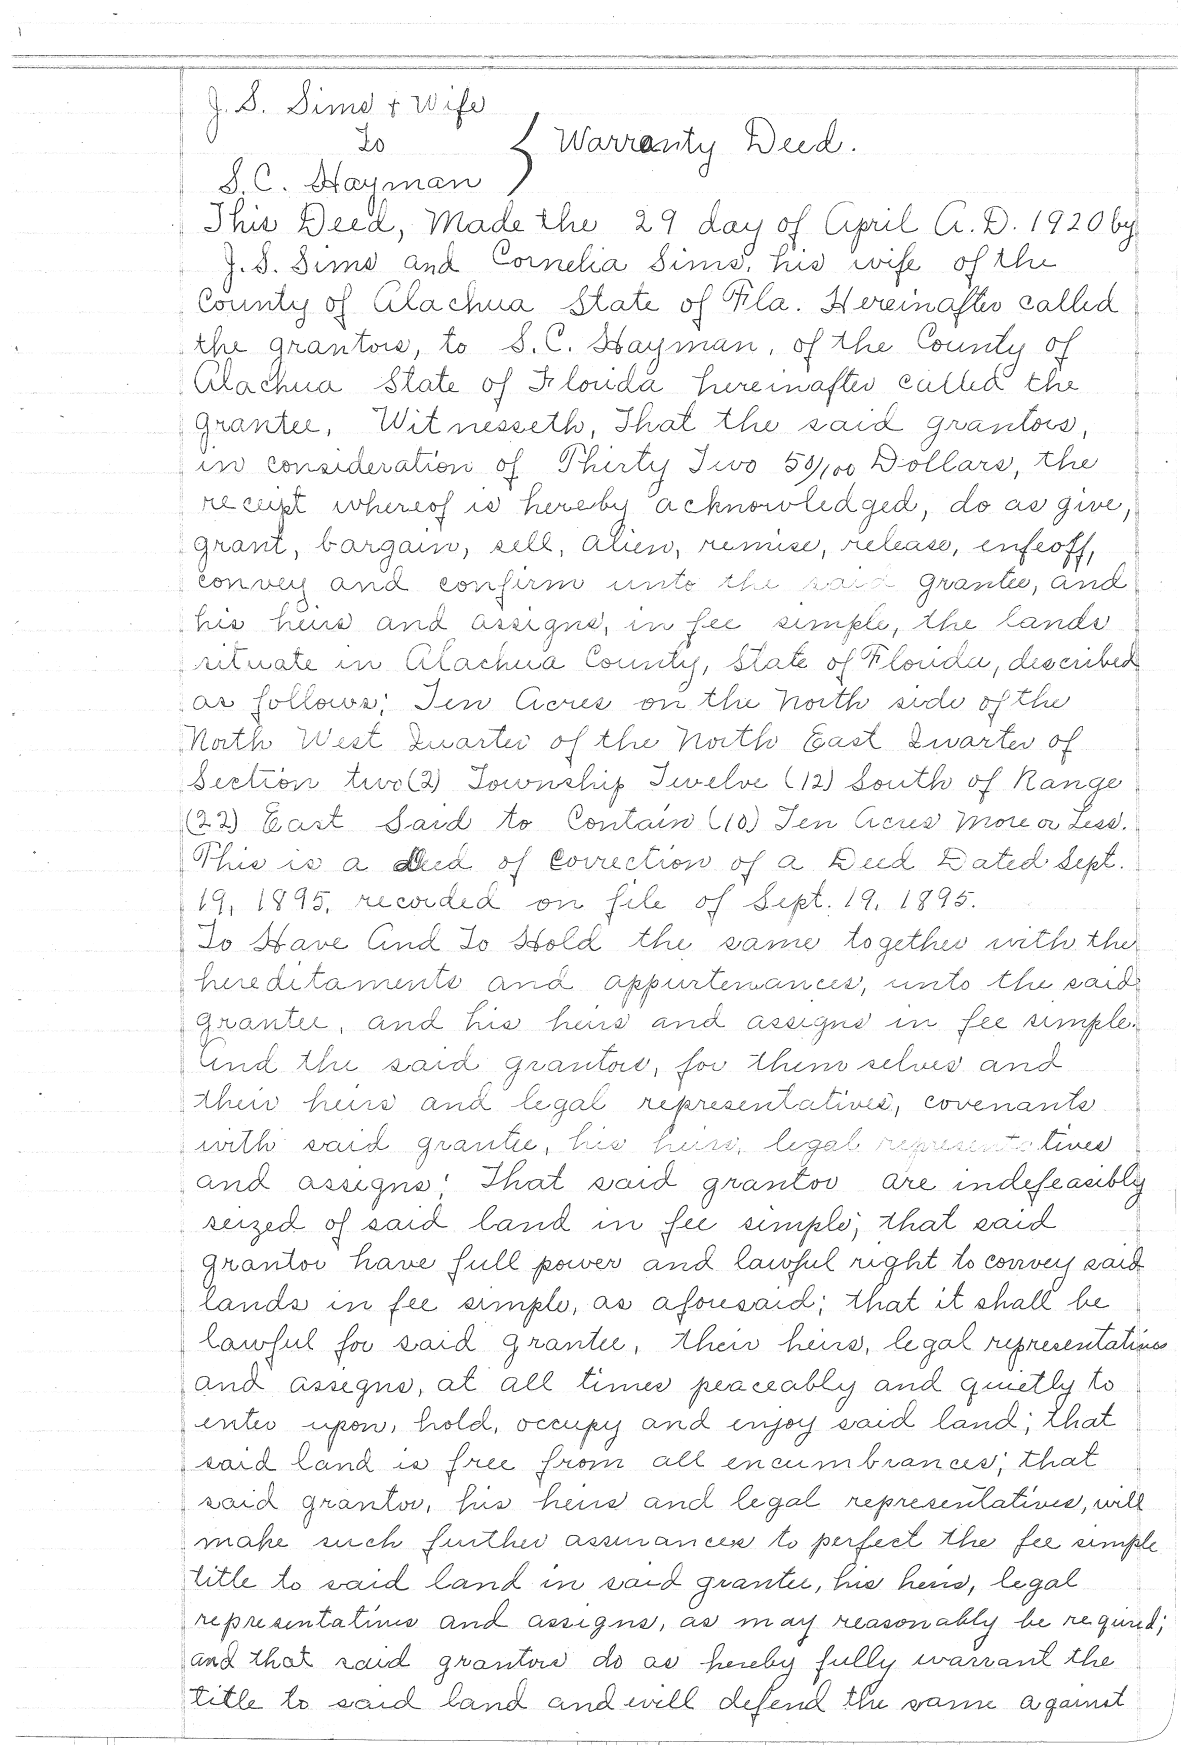 J. S. Sims + Wife
To
Warranty Deed.
S.C. Hayman
This Deed, Made the 29 day of April A.D. 1920 by
J. S. Sims and Cornelia Sims, his wife of the
County of Alachua State of Fla. Hereinafter called
the grantors, to S.C. Hayman, of the County of
Alachua State of Florida hereinafter called the
grantee, Witnesseth, That the said grantors,
in consideration of Thirty Two 50/100 Dollars, the
receipt whereof is hereby acknowledged, do as give,
grant, bargain, sell, alien, remise, release, enfeoff,
convey and confirm unto the said grantee, and
his heirs and assigns, in fee simple, the lands
situate in Alachua County, State of Florida, described
as follows; Ten Acres on the North side of the
North West Quarter of the North East Quarter of
Section two (2) Township Twelve (12) South of Range
(22) East Said to Contain (10) Ten Acres More or Less.
This is a Deed of Correction of a Deed Dated Sept.
19, 1895, recorded on file of Sept. 19, 1895.
To Have And To Hold the same together with the
hereditaments and appurtenances, unto the said
grantee, and his heirs and assigns in fee simple.
And the said grantors, for them selves and
their heirs and legal representatives, covenants
with said grantee, his heirs, legal representatives
and assigns: That said grantor are indefeasibly
seized of said land in fee simple; that said
grantor have full power and lawful right to convey said
lands in fee simple, as aforesaid; that it shall be
lawful for said grantee, their heirs, legal representatives
and assigns, at all times peaceably and quietly to
enter upon, hold, occupy and enjoy said land; that
said land is free from all encumbrances; that
said grantor, his heirs and legal representatives, will
make such further assurances to perfect the fee simple
title to said land in said grantee, his heirs, legal
representatives and assigns, as may reasonably be required;
and that said grantors do as hereby fully warrant the
title to said land and will defend the same against